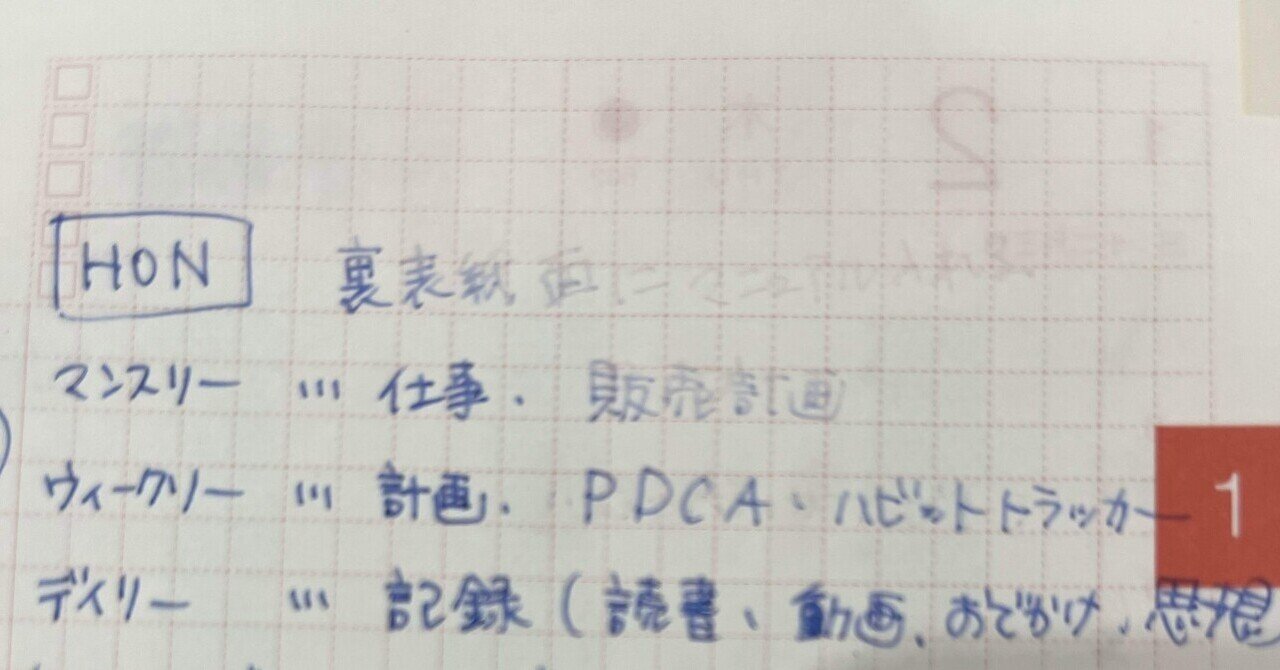 HON 裏表紙面にマンスリー入れる
マンスリー … 仕事. 販売計画
ウィークリー … 計画. PDCA、ハビットトラッカー
1
デイリー … 記録(読書、動画、おでかけ、思想